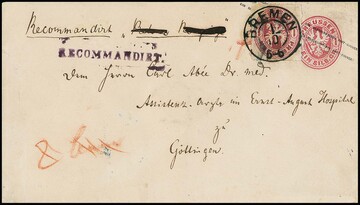 Recommandirt
BREMEN
5-6
PREUSSEN
RECOMMANDIRT.
Dem Herrn Carl Abée Dr. med.
Assistenz-Arzte im Ernst-August Hospital
zu
Göttingen